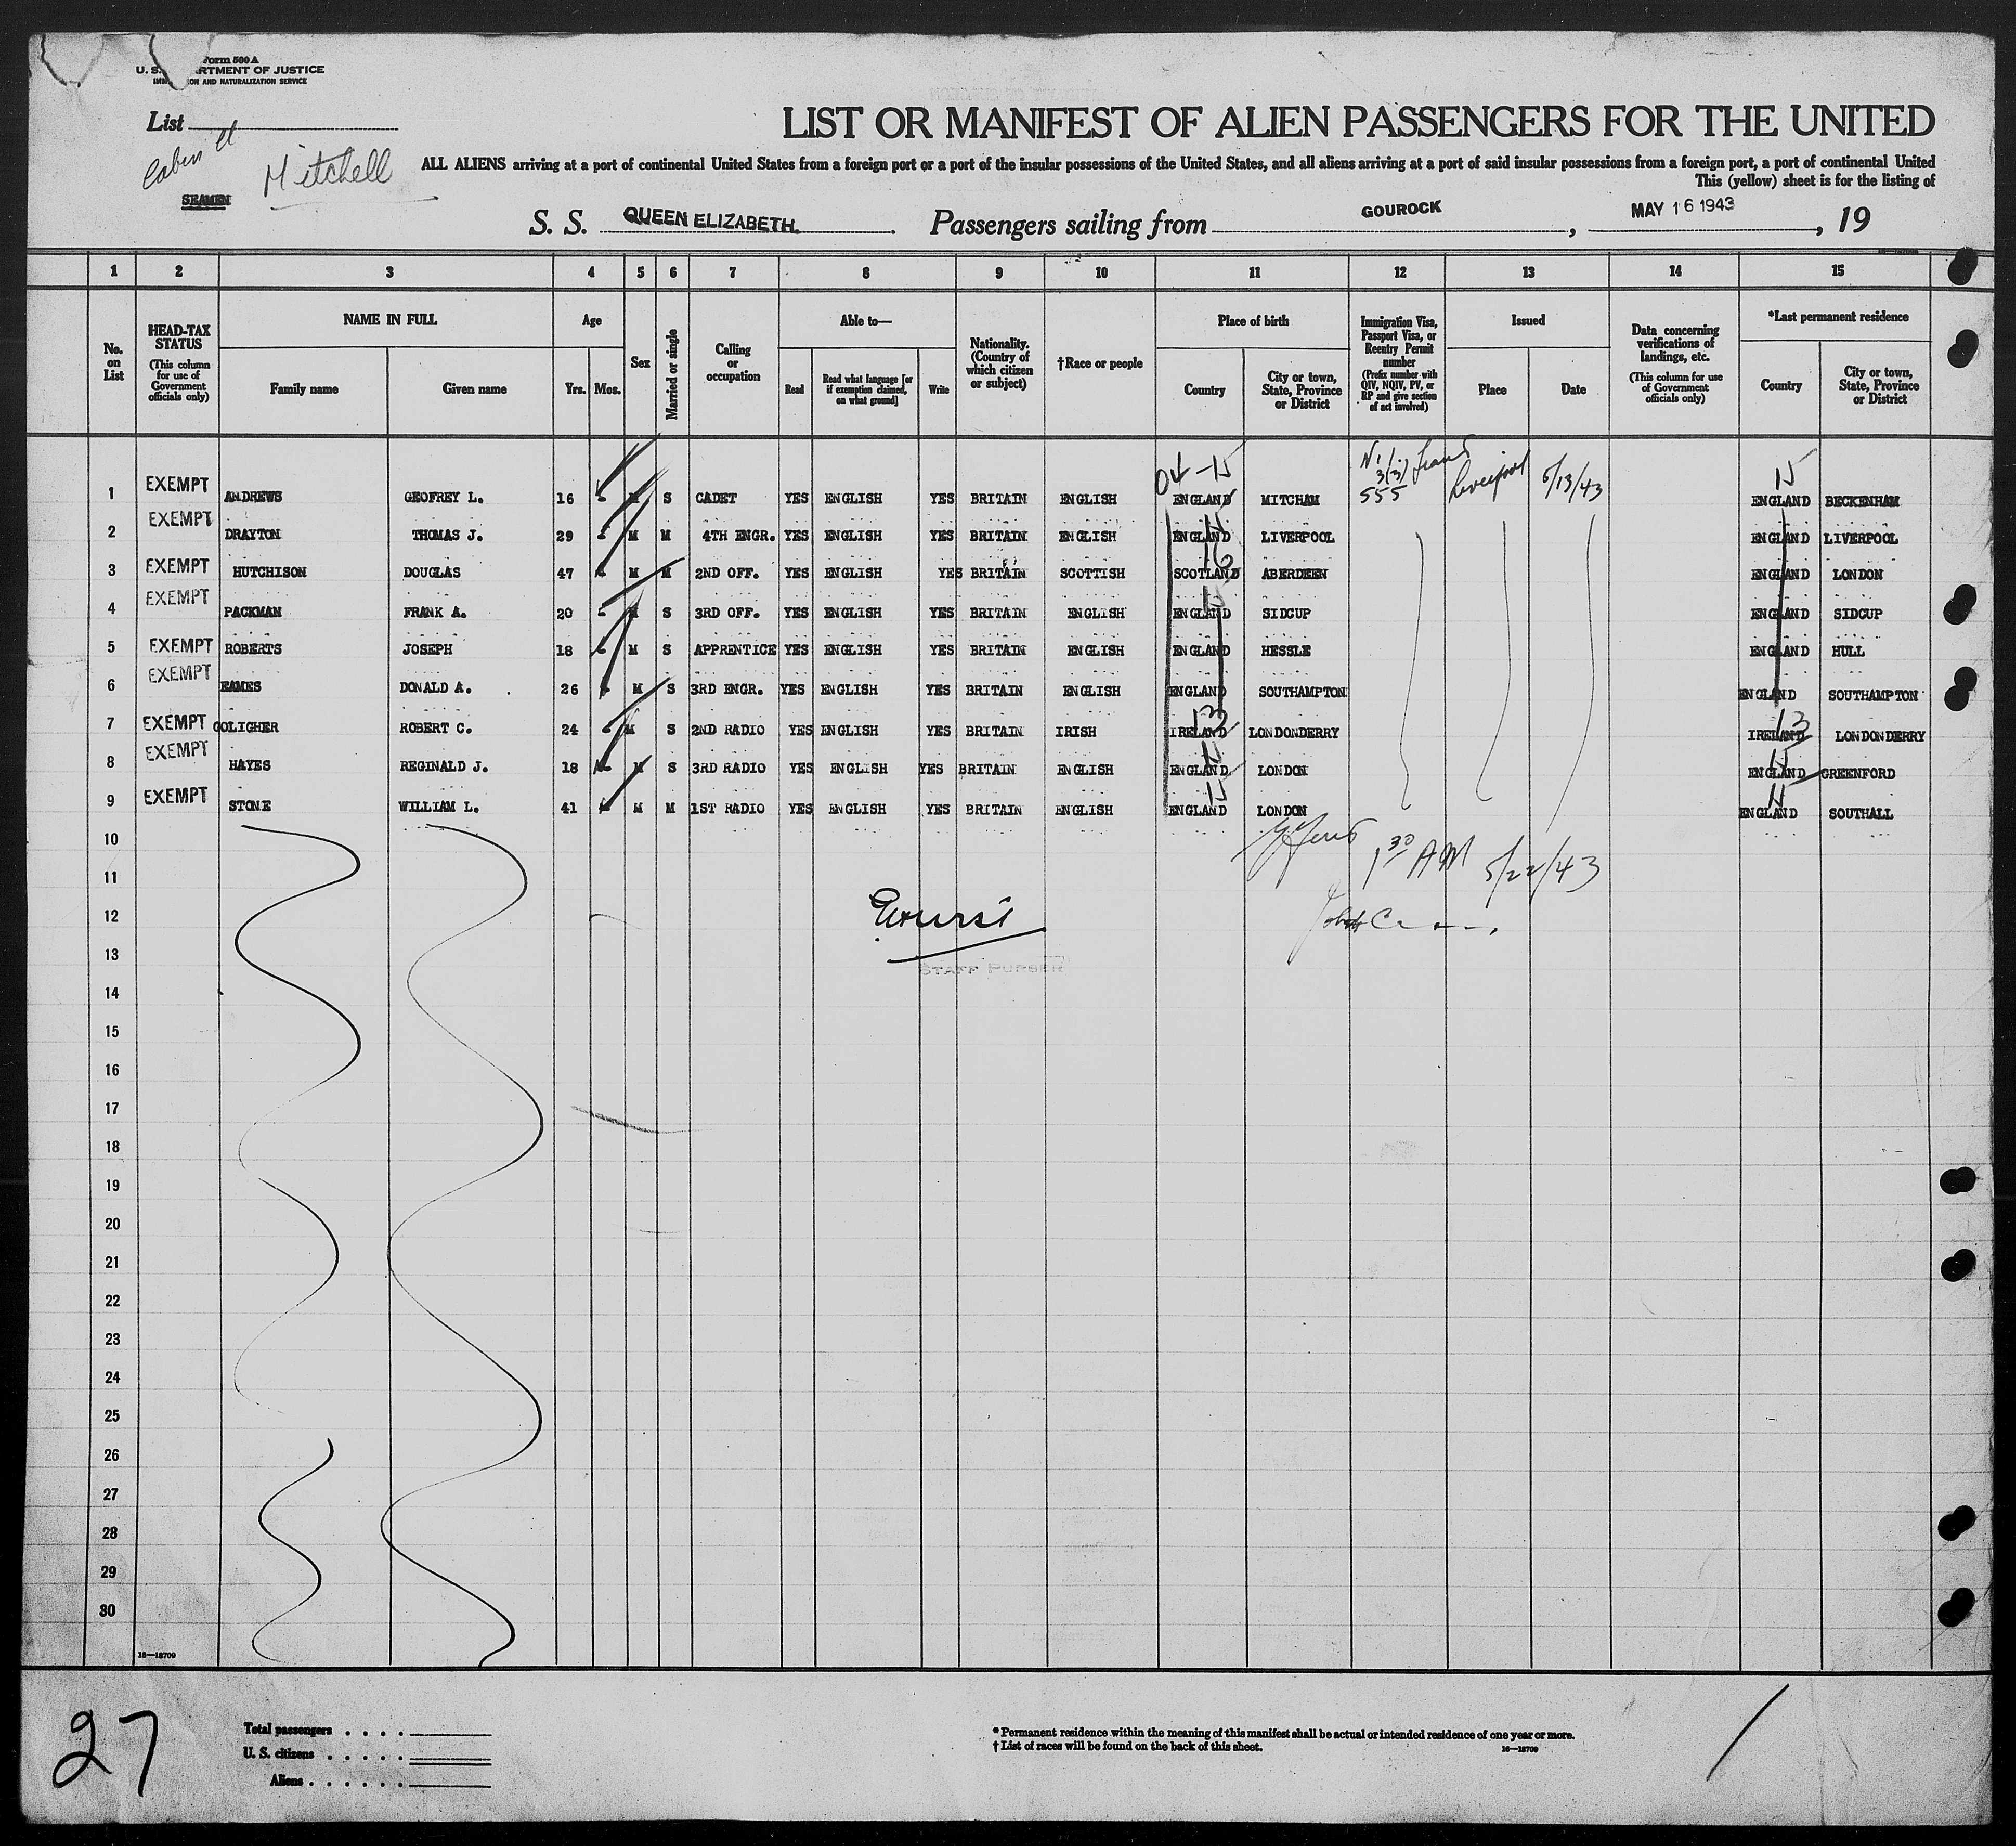 Form 500 A
U. S. DEPARTMENT OF JUSTICE
IMMIGRATION AND NATURALIZATION SERVICE
List
Mitchell
SEAMEN
LIST OR MANIFEST OF ALIEN PASSENGERS FOR THE UNITED
ALL ALIENS arriving at a port of continental United States from a foreign port or a port of the insular possessions of the United States, and all aliens arriving at a port of said insular possessions from a foreign port, a port of continental United
This (yellow) sheet is for the listing of
S. S. QUEEN ELIZABETH. Passengers sailing from GOUROCK, MAY 16 1943, 19
1 2 3 4 5 6 7 8 9 10 11 12 13 14 15
No. on List
HEAD-TAX STATUS (This column for use of Government officials only)
NAME IN FULL Family name Given name
Age Yrs. Mos.
Sex
Married or single
Calling or occupation
Able to— Read Read what language [or if exemption claimed, on what ground] Write
Nationality. (Country of which citizen or subject)
†Race or people
Place of birth Country City or town, State, Province or District
Immigration Visa, Passport Visa, or Reentry Permit number (Prefix number with QIV, NQIV, PV, or RP and give section of act involved)
Issued Place Date
Data concerning verifications of landings, etc. (This column for use of Government officials only)
*Last permanent residence Country City or town, State, Province or District
04-15 3(3) 15
1 EXEMPT ANDREWS GEOFREY L. 16 M S CADET YES ENGLISH YES BRITAIN ENGLISH ENGLAND MITCHAM 555 Liverpool 5/13/43 ENGLAND BECKENHAM
2 EXEMPT DRAYTON THOMAS J. 29 M M 4TH ENGR. YES ENGLISH YES BRITAIN ENGLISH 15 ENGLAND LIVERPOOL ENGLAND LIVERPOOL
3 EXEMPT HUTCHISON DOUGLAS 47 M M 2ND OFF. YES ENGLISH YES BRITAIN SCOTTISH 16 SCOTLAND ABERDEEN ENGLAND LONDON
4 EXEMPT PACKMAN FRANK A. 20 M S 3RD OFF. YES ENGLISH YES BRITAIN ENGLISH 15 ENGLAND SIDCUP ENGLAND SIDCUP
5 EXEMPT ROBERTS JOSEPH 18 M S APPRENTICE YES ENGLISH YES BRITAIN ENGLISH ENGLAND HESSLE ENGLAND HULL
6 EXEMPT EAMES DONALD A. 26 M S 3RD ENGR. YES ENGLISH YES BRITAIN ENGLISH ENGLAND SOUTHAMPTON ENGLAND SOUTHAMPTON
7 EXEMPT GOLIGHER ROBERT C. 24 M S 2ND RADIO YES ENGLISH YES BRITAIN IRISH 13 IRELAND LONDONDERRY 13 IRELAND LONDONDERRY
8 EXEMPT HAYES REGINALD J. 18 M S 3RD RADIO YES ENGLISH YES BRITAIN ENGLISH 15 ENGLAND LONDON 15 ENGLAND GREENFORD
9 EXEMPT STONE WILLIAM L. 41 M M 1ST RADIO YES ENGLISH YES BRITAIN ENGLISH 15 ENGLAND LONDON 15 ENGLAND SOUTHALL
10
11 1 30 AM 5/22/43
12
13 STAFF PURSER
14
15
16
17
18
19
20
21
22
23
24
25
26
27
28
29
30
16—18709
27
Total passengers
U. S. citizens
Aliens
* Permanent residence within the meaning of this manifest shall be actual or intended residence of one year or more.
† List of races will be found on the back of this sheet.
16—18709